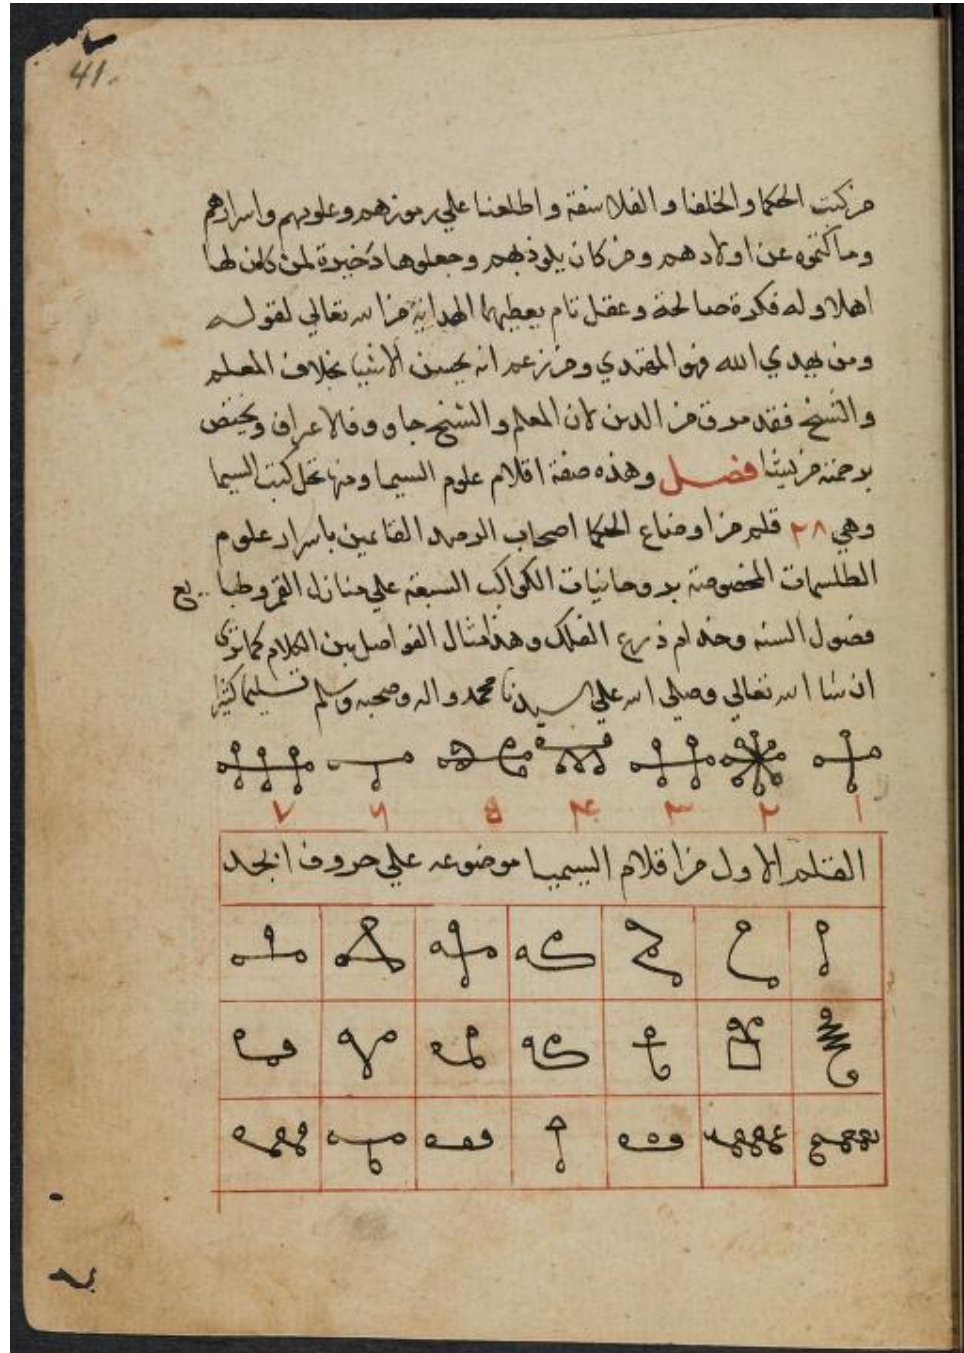 41.
من كتب الحكما والخلفا والفلاسفة واطلعنا علي رموزهم وعلومهم واسرارهم
وما كتموه عن اولادهم ومن كان يلوذ بهم وجعلوها ذخيرة لمن كان لها
اهلا وله فكرة صالحة وعقل تام يعطيهما الهداية من الله تعالي لقوله
ومن يهدي الله فهو المهتدي ومن زعم انه يحسن الاشيا بخلاف المعلم
والشيخ فقد مرق من الدين لان المعلم والشيخ ويختص
برحمته من يشا فصل وهذه صفة اقلام علوم السيما ومنها تحل كتب السيما
وهي ٢٨ قلم من اوضاع الحكما اصحاب الرصد القاعين باسرار علوم
الطلسمات المخصوصة بروحانيات الكواكب السبعة علي منازل القمر وطبايع
فصول السنه وخدام ذرع الفلك وهذا مثال الفواصل بين الكلام كما تري
ان شا الله تعالي وصلي الله علي سيدنا محمد واله وصحبه وسلم تسليما كثيرا
١ ٢ ٣ ۴ ۵ ٦ ٧
القلم الاول من اقلام السيميا موضوعه علي حروف ابجد